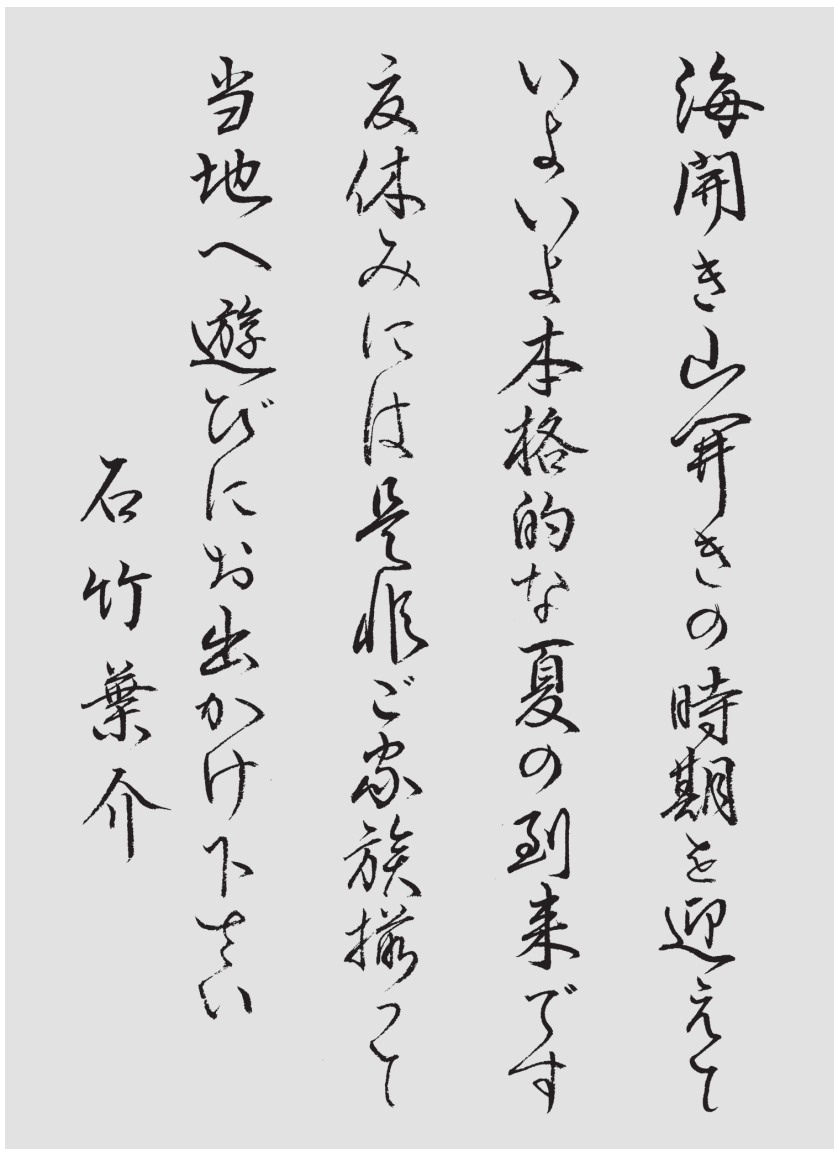 海開き山開きの時期を迎えて
いよいよ本格的な夏の到来です
夏休みには是非ご家族揃って
当地へ遊びにお出かけ下さい
石竹葉介